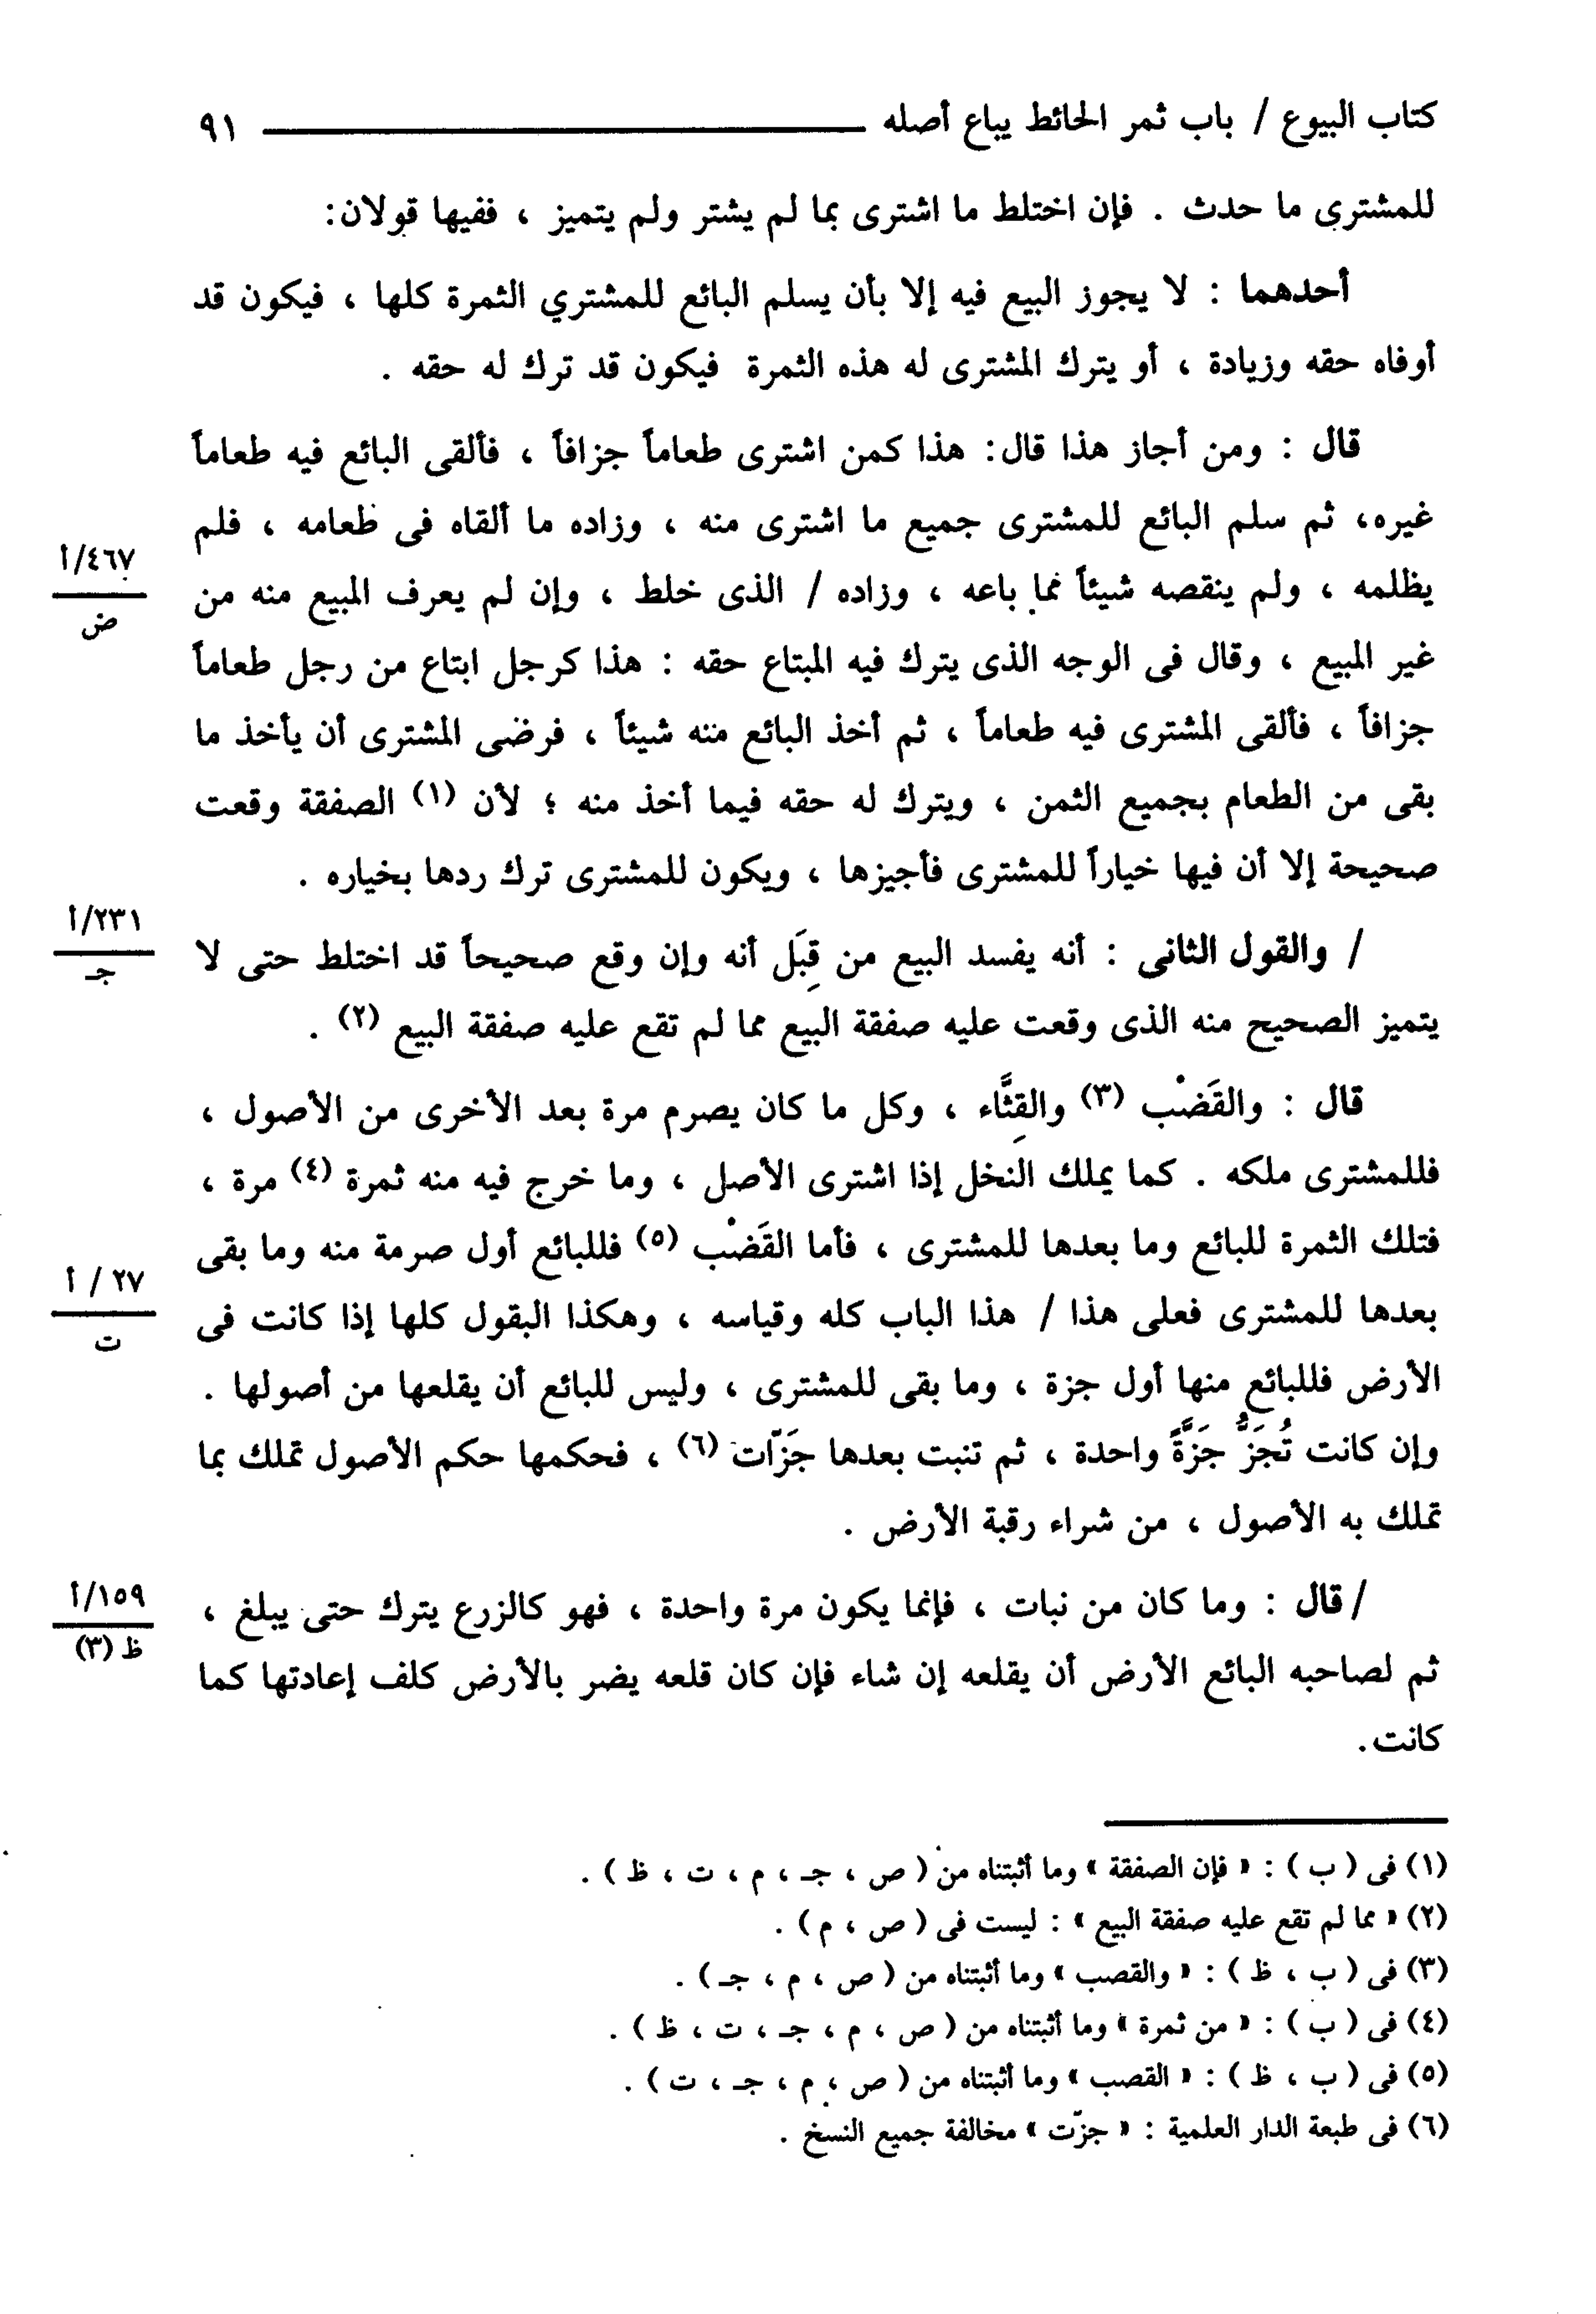 كتاب البيوع / باب ثمر الحائط يباع أصله ــــــــــ ٩١
للمشترى ما حدث . فإن اختلط ما اشترى بما لم يشتر ولم يتميز ، ففيها قولان:
أحدهما : لا يجوز البيع فيه إلا بأن يسلم البائع للمشتري الثمرة كلها ، فيكون قد
أوفاه حقه وزيادة ، أو يترك المشترى له هذه الثمرة فيكون قد ترك له حقه .
قال : ومن أجاز هذا قال: هذا كمن اشترى طعاماً جزافاً ، فألقى البائع فيه طعاماً
غيره، ثم سلم البائع للمشترى جميع ما اشترى منه ، وزاده ما ألقاه فى طعامه ، فلم
يظلمه ، ولم ينقصه شيئاً مما باعه ، وزاده / الذى خلط ، وإن لم يعرف المبيع منه من
٤٦٧/أ
ض
غير المبيع ، وقال فى الوجه الذى يترك فيه المبتاع حقه : هذا كرجل ابتاع من رجل طعاماً
جزافاً ، فألقى المشترى فيه طعاماً ، ثم أخذ البائع منه شيئاً ، فرضى المشترى أن يأخذ ما
بقى من الطعام بجميع الثمن ، ويترك له حقه فيما أخذ منه ؛ لأن (١) الصفقة وقعت
صحيحة إلا أن فيها خياراً للمشترى فأجيزها ، ويكون للمشترى ترك ردها بخياره .
/ والقول الثانى : أنه يفسد البيع من قِبَل أنه وإن وقع صحيحاً قد اختلط حتى لا
٢٣١/أ
جـ
يتميز الصحيح منه الذى وقعت عليه صفقة البيع مما لم تقع عليه صفقة البيع (٢) .
قال : والقَضْب (٣) والقِثَّاء ، وكل ما كان يصرم مرة بعد الأخرى من الأصول ،
فللمشترى ملكه . كما يملك النخل إذا اشترى الأصل ، وما خرج فيه منه ثمرة (٤) مرة ،
فتلك الثمرة للبائع وما بعدها للمشترى ، فأما القَضْب (٥) فللبائع أول صرمة منه وما بقى
بعدها للمشترى فعلى هذا / هذا الباب كله وقياسه ، وهكذا البقول كلها إذا كانت فى
٢٧ / أ
ت
الأرض فللبائع منها أول جزة ، وما بقى للمشترى ، وليس للبائع أن يقلعها من أصولها .
وإن كانت تُجَزُّ جَزَّةً واحدة ، ثم تنبت بعدها جَزّات (٦) ، فحكمها حكم الأصول تملك بما
تملك به الأصول ، من شراء رقبة الأرض .
/ قال : وما كان من نبات ، فإنما يكون مرة واحدة ، فهو كالزرع يترك حتى يبلغ ،
١٥٩/أ
ظ (٣)
ثم لصاحبه البائع الأرض أن يقلعه إن شاء فإن كان قلعه يضر بالأرض كلف إعادتها كما
كانت.
(١) فى ( ب ) : « فإن الصفقة » وما أثبتناه من ( ص ، جـ ، م ، ت ، ظ ) .
(٢) « مما لم تقع عليه صفقة البيع » : ليست فى ( ص ، م ) .
(٣) فى ( ب ، ظ ) : « والقصب » وما أثبتناه من ( ص ، م ، جـ ) .
(٤) فى ( ب ) : « من ثمرة » وما أثبتناه من ( ص ، م ، جـ ، ت ، ظ ) .
(٥) فى ( ب ، ظ ) : « القصب » وما أثبتناه من ( ص ، م ، جـ ، ت ) .
(٦) فى طبعة الدار العلمية : « جزّت » مخالفة جميع النسخ .